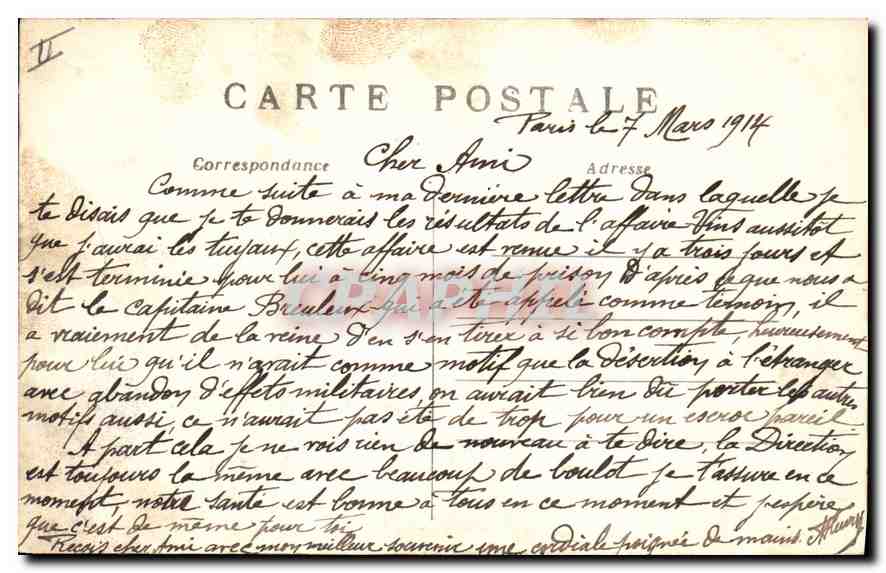 II
CARTE POSTALE
Paris le 7 Mars 1914
Correspondance
Cher Ami
Adresse
Comme suite à ma dernière lettre dans laquelle je
te disais que je te donnerais les résultats de l'affaire Vins aussitôt
que j'aurai les tuyaux, cette affaire est venue il y a trois jours et
s'est terminée pour lui à cinq mois de prison D'après ce que nous a
dit le capitaine Breuleux qui a été appelé comme temoin, il
a vraiement de la veine d'en s'en tirer à si bon compte, heureusement
pour lui qu'il n'avait comme motif que la désertion à l'étranger
avec abandon d'effets militaires, on aurait bien dû porter les autres
motifs aussi, ce n'aurait pas été de trop pour un escroc pareil
A part cela je ne vois rien de nouveau à te dire, la Direction
est toujours la même avec beaucoup de boulot je t'assure en ce
moment, notre santé est bonne à tous en ce moment et j'espère
que c'est de même pour toi
Reçois cher Ami avec mon meilleur souvenir une cordiale poignée de mains.
CPAPHIL